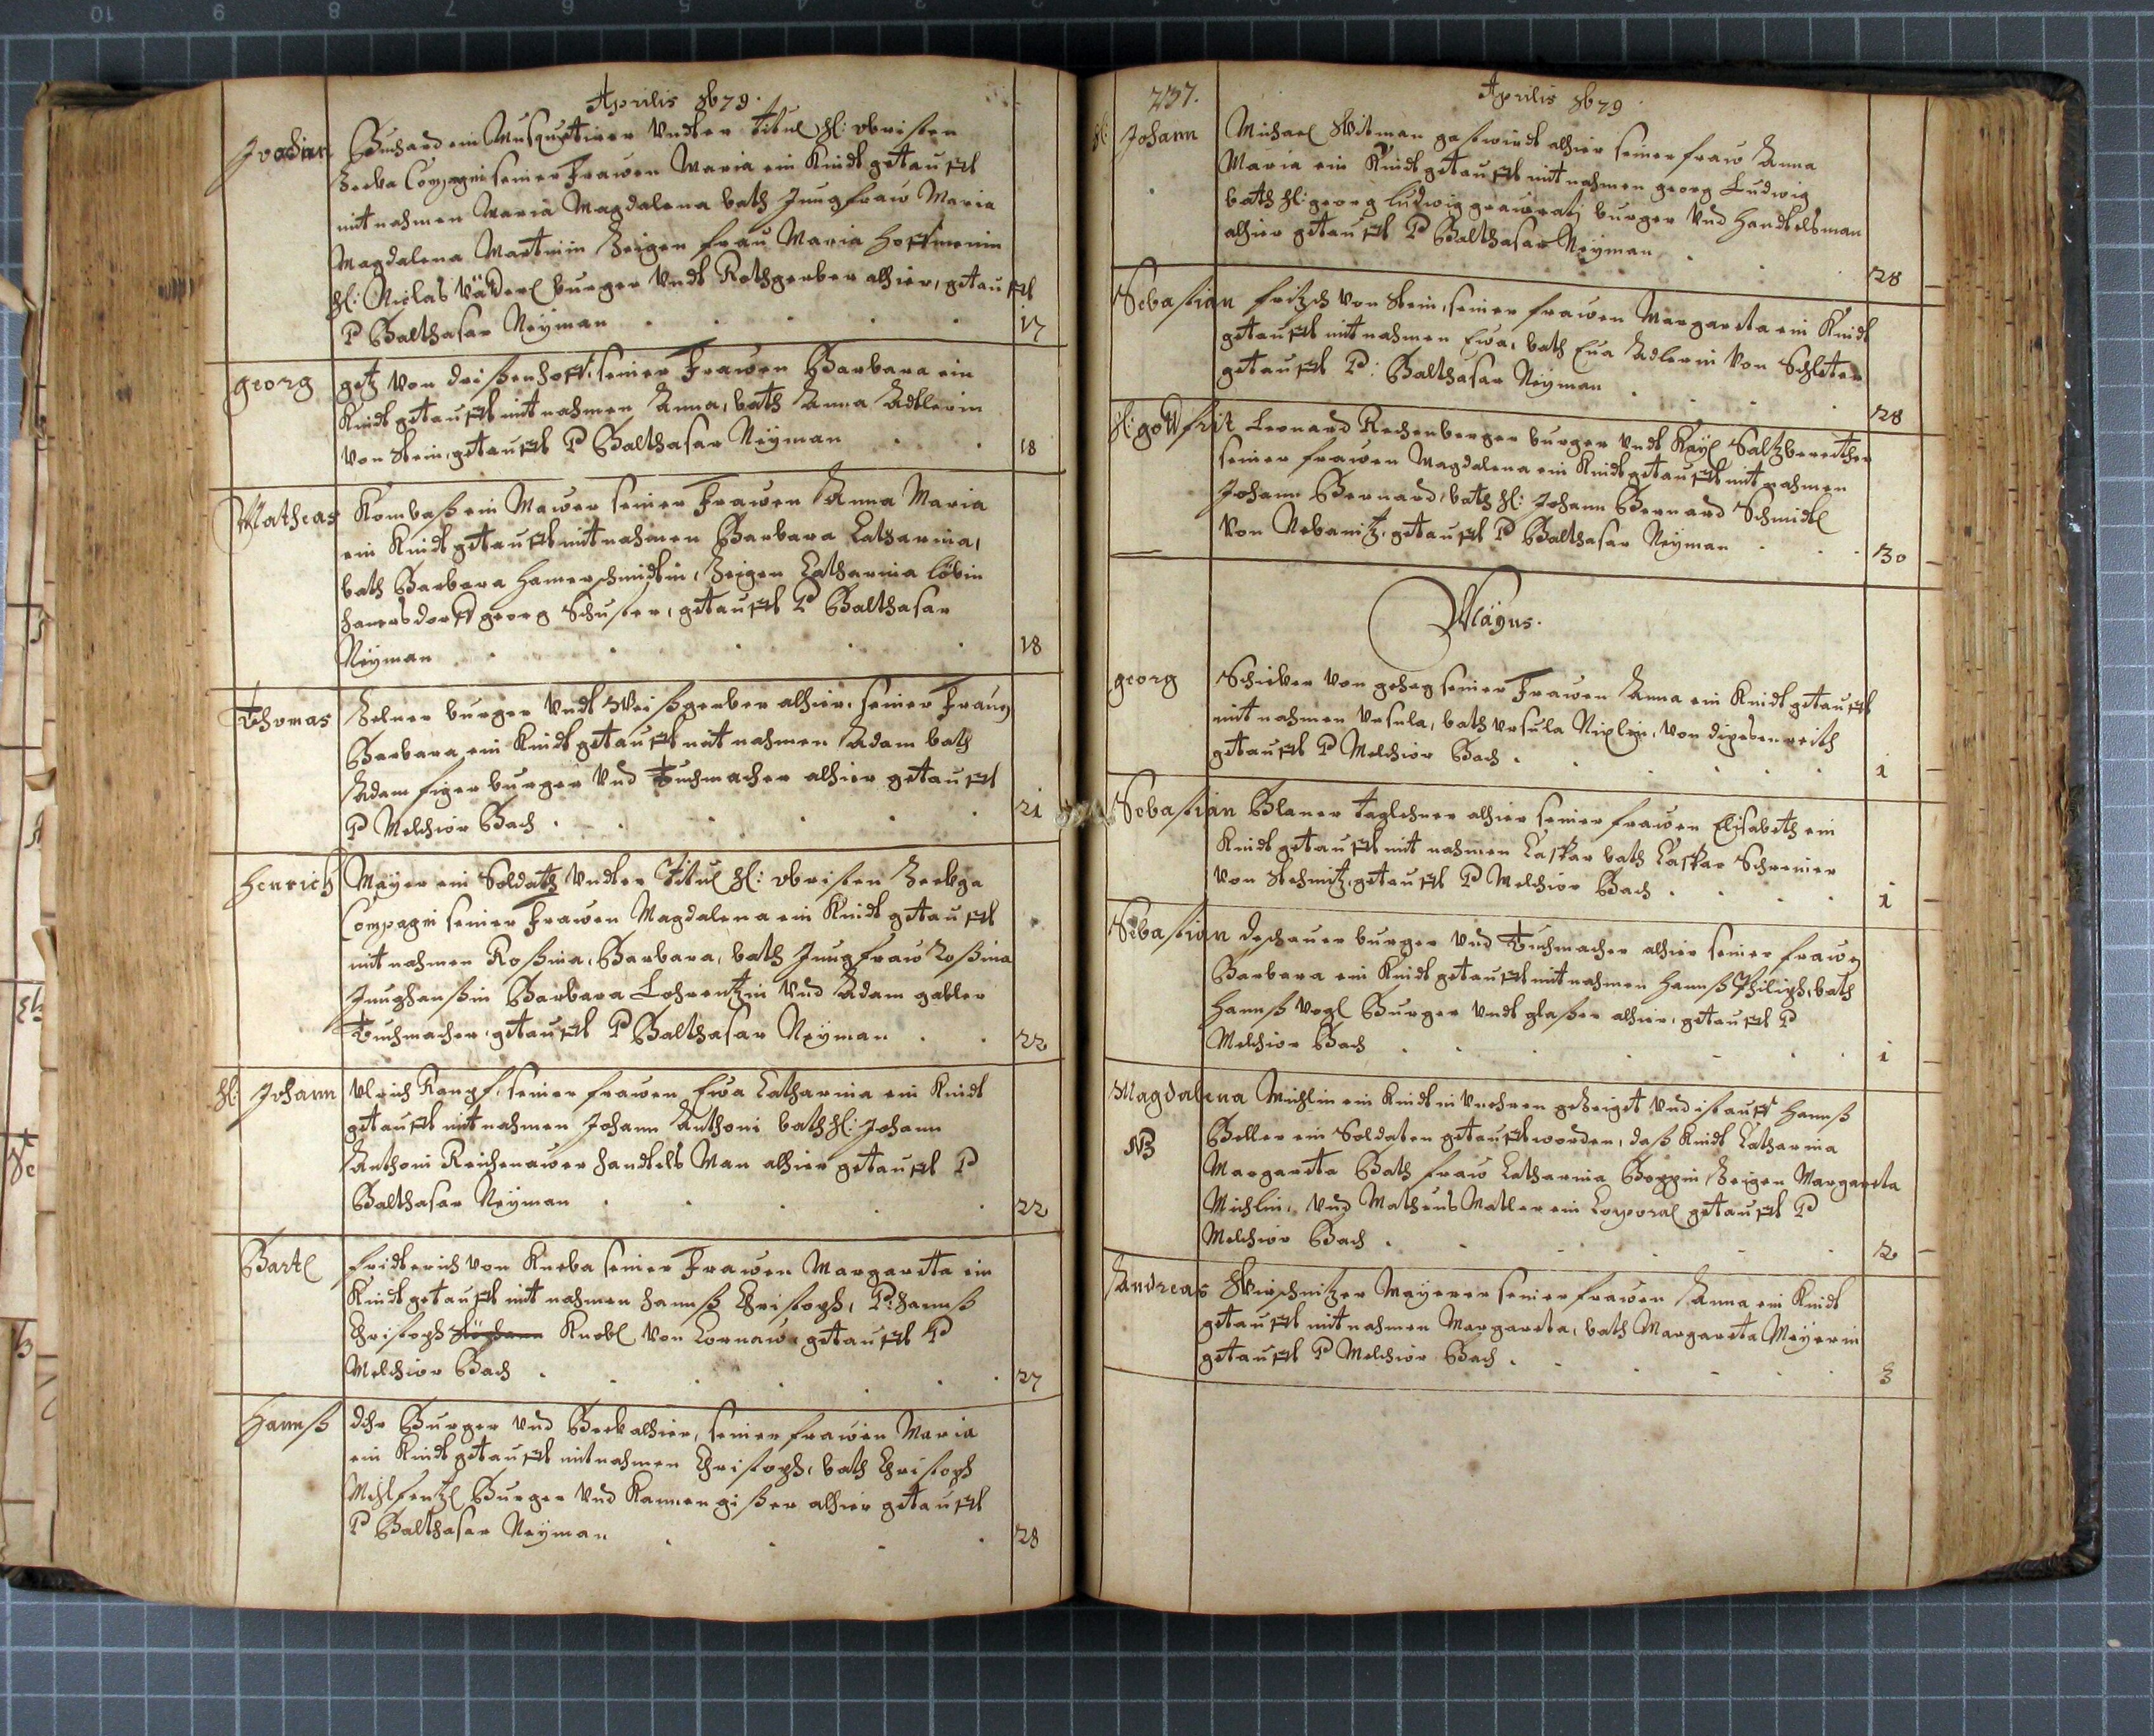 Aprilis 1679.
Joachim Buchard ein Musquetirer Undter Titul H: obristen
Compagni seiner Frawen Maria ein Kindt getaufft
mit nahmen Maria Magdalena bath Jungfraw Maria
Magdalena Martinin Zeigen fraw Maria Hoffmenin
H: Niclas burger Undt Rothgerber alhier, getaufft
P Balthasar Neyman 17
georg getz Von drißenhoff, seiner Frawen Barbara ein
Kindt getaufft mit nahmen Anna, bath Anna Adtlerin
Von Stein, getaufft P Balthasar Neyman 18
Matheas Kombaß ein Mawer seiner Frawen Anna Maria
ein Kindt getaufft mit nahmen Barbara Catharina,
bath Barbara Hamerschmidtin, Zeigen Catharina löbin
georg Schuster, getaufft P Balthasar
Neyman 18
Thomas Zelner burger Undt Weißgerber alhier, seiner Frawen
Barbara ein Kindt getaufft mit nahmen Adam bath
Adam figer burger Und Tuchmacher alhier getaufft
P Melchior Bach 21
Henrich Mayer ein Soldatz Undter Titul H: obristen
Compagni seiner Frawen Magdalena ein Kindt getaufft
mit nahmen Roßina, Barbara, bath Jungfraw Roßina
Junghanßin Barbara Lohrentzin Und Adam gabler
Tuchmacher, getaufft P Balthasar Neyman 22
H: Johann Ulrich Kampf, seiner frawen Eva Catharina ein Kindt
getaufft mit nahmen Johann Anthoni bath H: Johann
Anthoni Reichenawer handtels Man alhier getaufft P
Balthasar Neyman 22
Bartl fridterich von Kneba seiner Frawen Margaretta ein
Kindt getaufft mit nahmen Hannß Christoph, P: Hannß
Christoph Knobl Von Lornaw, getaufft P
Melchior Bach 27
Hannß Burger Und Beckh alhier, seiner frawen Maria
ein Kindt getaufft mit nahmen Christoph, bath Christoph
Burger Und Kannengißer alhier getaufft
P Balthasar Neyman 28
237. Aprilis 1679
H: Johann Michael Witman gastwirdt alhier seiner fraw Anna
Maria ein Kindt getaufft mit nahmen georg Ludwig
bath H: georg ludwig burger Und Handtelsman
alhier getaufft P Balthasar Neyman 28
Sebastian fritzsch Von Stein, seiner frawen Margareta ein Kindt
getaufft mit nahmen Eva, bath Eva Adlerin Von
getaufft P: Balthasar Neyman 28
H: gottfrit Leonard Reichenberger burger Undt Kayl Saltzbereither
seiner frawen Magdalena ein Kindt getaufft mit nahmen
Johann Bernard, bath H: Johann Bernard Schmidtl
Von Nebanitz, getaufft P Balthasar Neyman 30
Mayus.
georg Von gehag seiner Frawen Anna ein Kindt getaufft
mit nahmen Ursula, bath Ursula Nixlin, von
getaufft P Melchior Bach 1
Sebastian Blaner taglehner alhier seiner frawen Elisabeth ein
Kindt getaufft mit nahmen Caspar bath Caspar Schreiner
Von getaufft P Melchior Bach 1
Sebastian deschauer burger Und Tuchmacher alhier seiner frawen
Barbara ein Kindt getaufft mit nahmen Hannß Philiph, bath
Hannß Vogl Burger Undt glaßer alhier, getaufft P
Melchior Bach 1
Magdalena Michlin ein Kindt in Unehren geZeiget Und ist auff Hannß
NB Beller ein Soldaten getaufft worden, daß Kindt Catharina
Margareta Bath fraw Catharina Zeigen Margareta
Michlin, Und Matheus ein Corporal getaufft P
Melchior Bach 2
Andreas Mayerer seiner frawen Anna ein Kindt
getaufft mit nahmen Margareta, bath Margareta Meyerin
getaufft P Melchior Bach 3